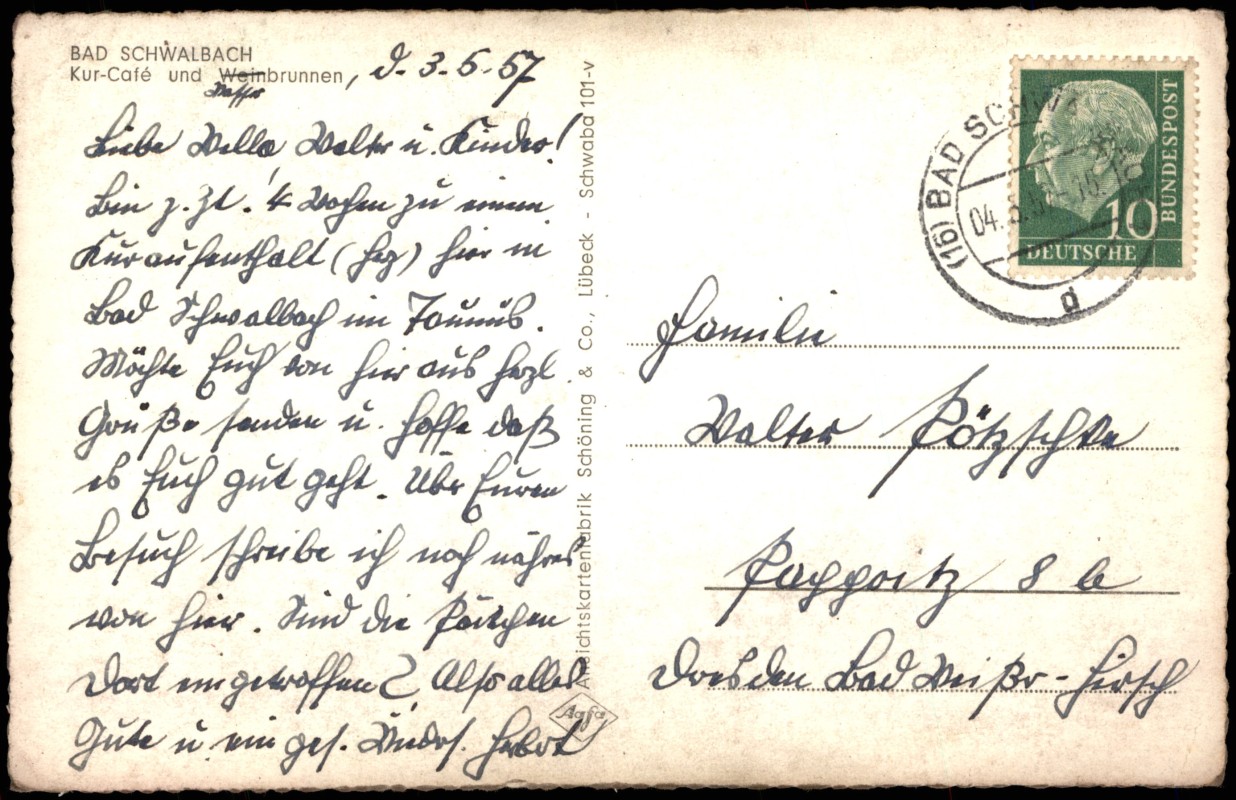 BAD SCHWALBACH
Kur-Café und Weinbrunnen, d. 3.5.57
Wasser
Liebe Wella Walter u. Kinder!
Bin z. Zt. 4 Wochen zu einem
Kuraufenthalt (Herz) hier in
Bad Schwalbach im Taunus.
Möchte Euch von hier aus herzl.
Grüße senden u. hoffe daß
es Euch gut geht. Über Euren
Besuch schreibe ich noch nähres
von hier. Sind die Päckchen
dort eingetroffen? Also alles
Gute u. ein ges. Wieders. Herbert
Ansichtskartenfabrik Schöning & Co., Lübeck - Schwaba 101-v
Agfa
(16) BAD SCHWAL
04.5.57
d
BUNDESPOST
10
DEUTSCHE
Familie
Walter Pötzschke
Pappritz 8 b
Dresden Bad Weißer-Hirsch